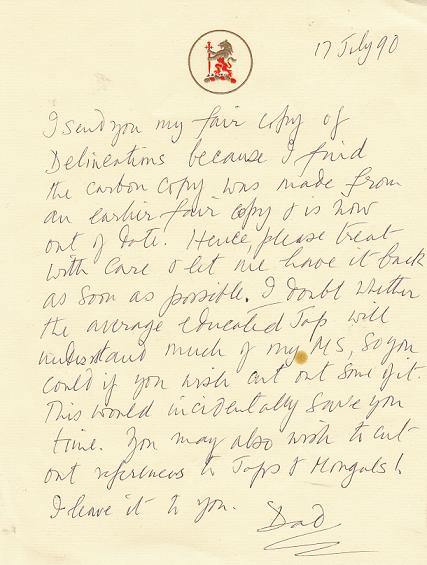 17 July 90
I send you my fair copy of
Delineations because I find
the carbon copy was made from
an earlier fair copy & is now
out of date. Hence please treat
with care & let me have it back
as soon as possible. I doubt whether
the average educated Jap will
understand much of my MS, so you
could if you wish cut out some of it.
This would incidentally save you
time. You may also wish to cut
out references to Japs & Mongols!
I leave it to you.
Dad